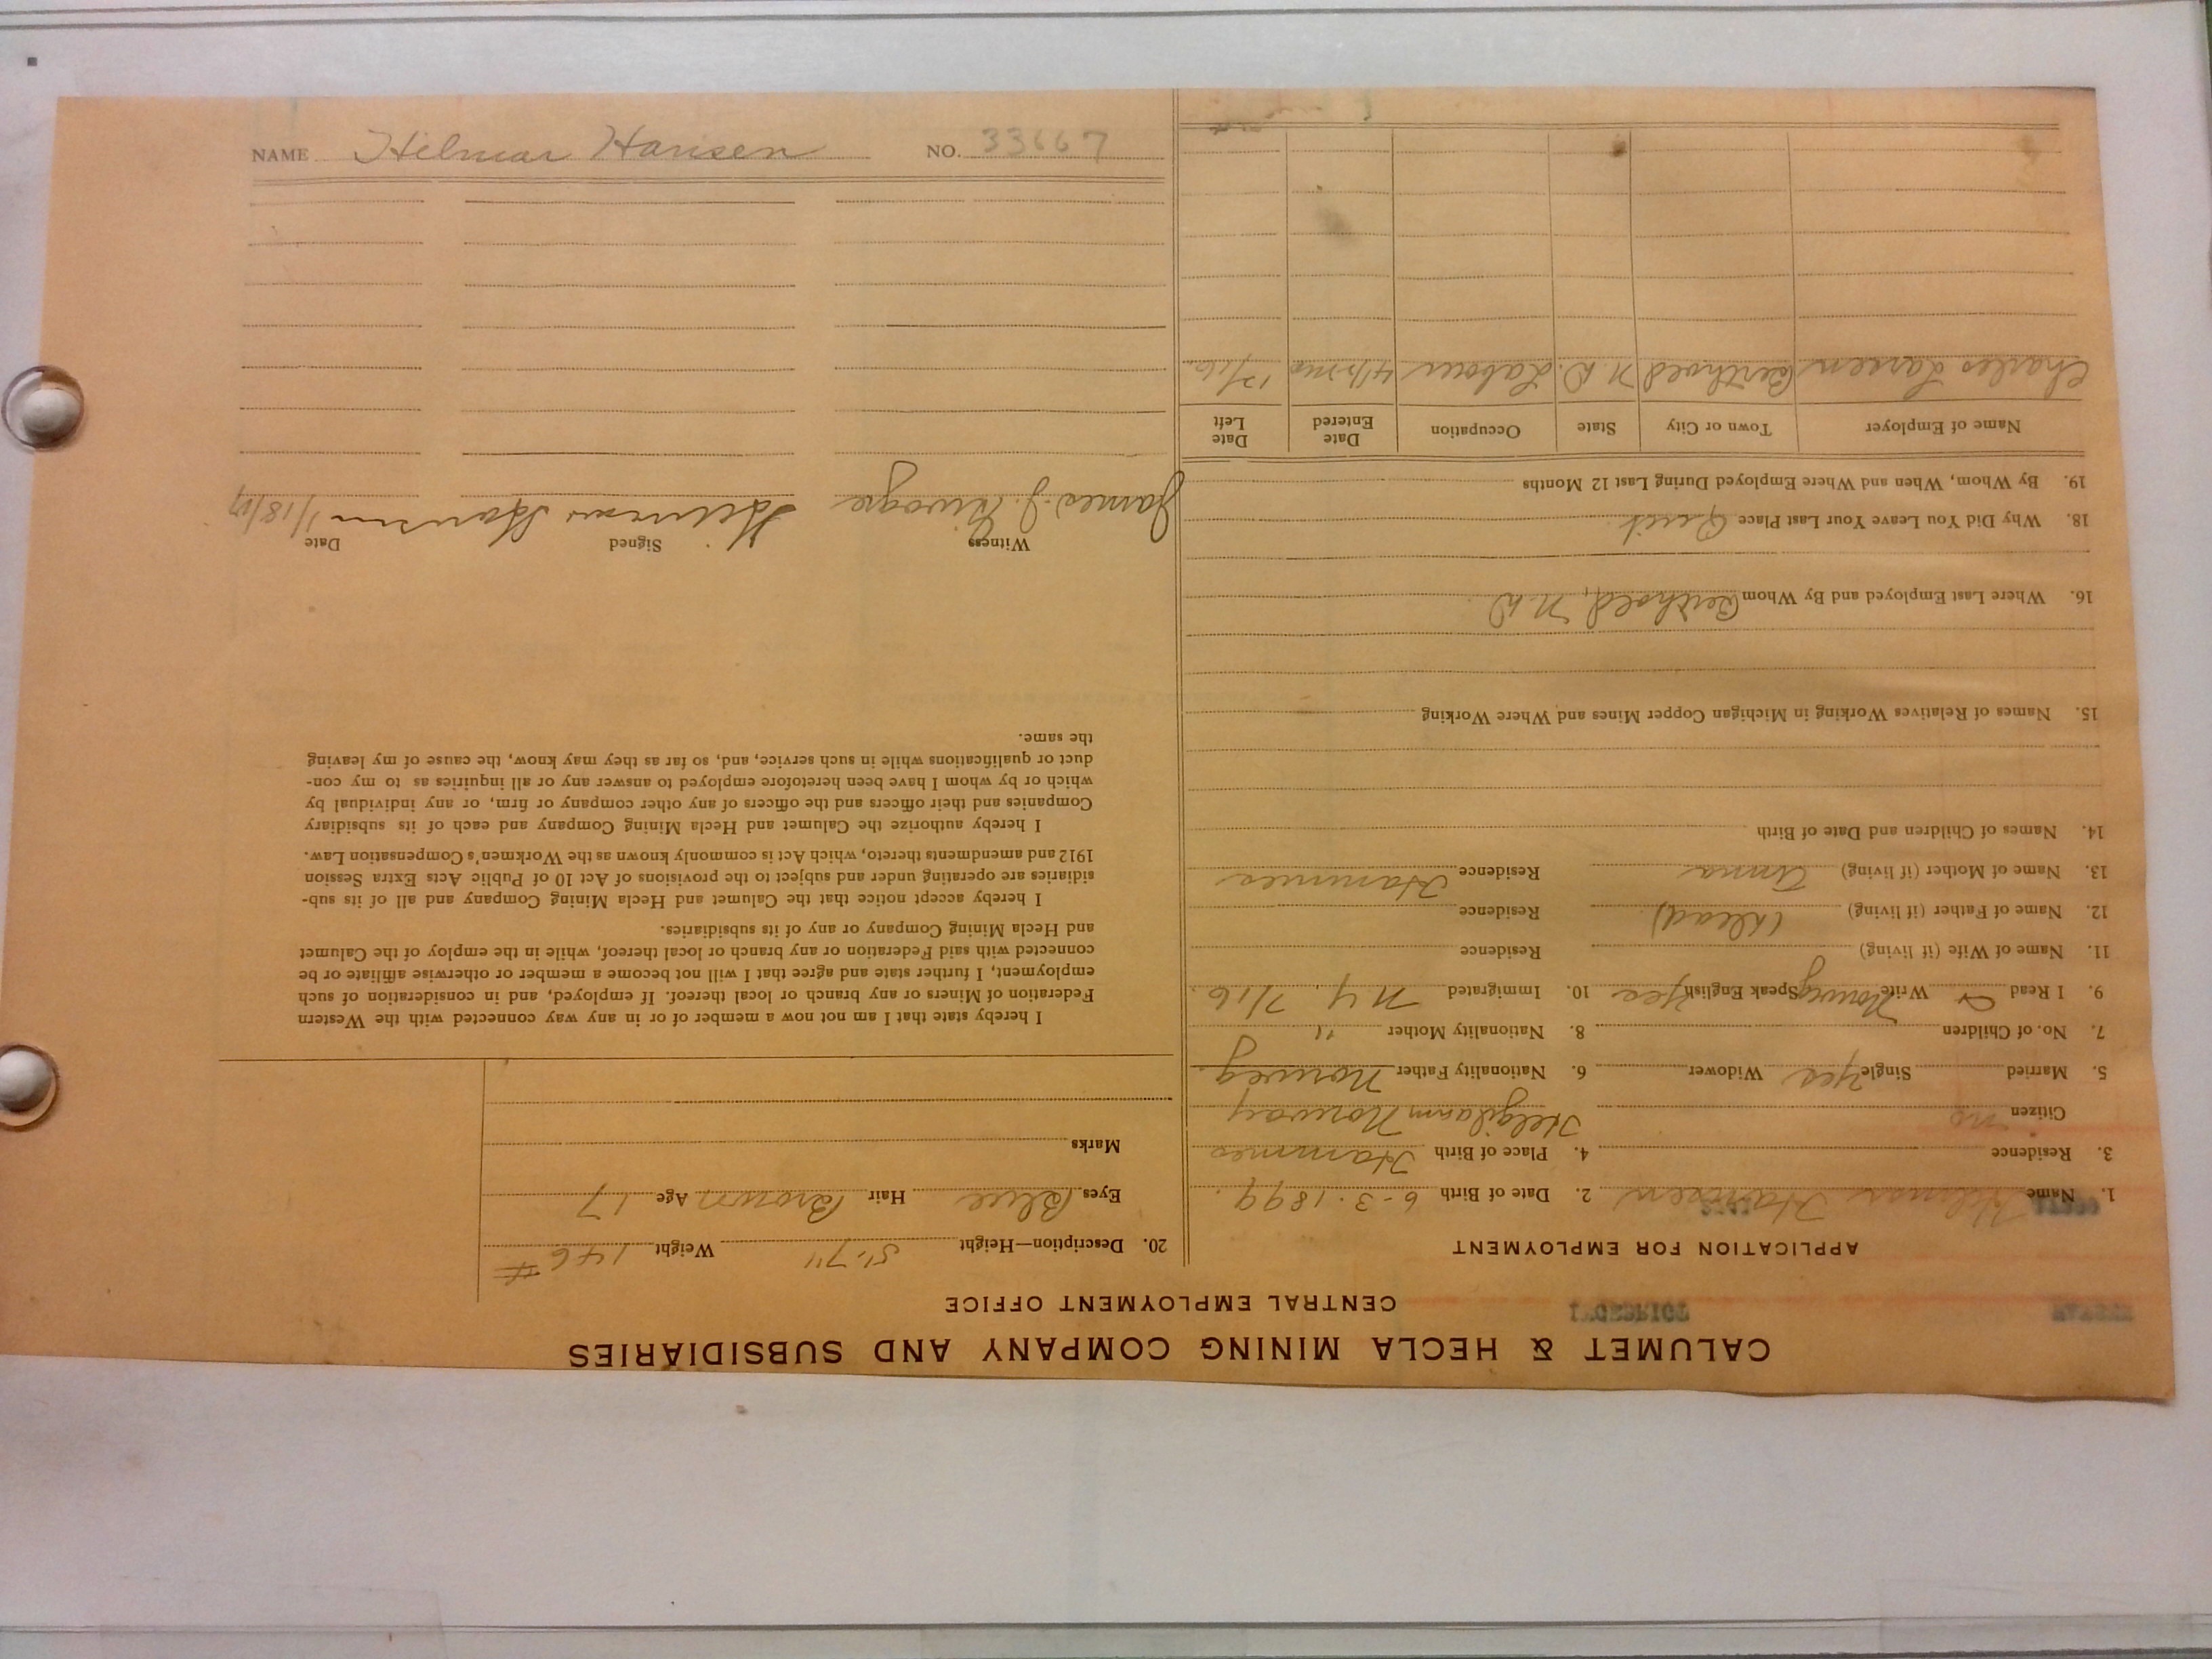 CALUMET & HECLA MINING COMPANY AND SUBSIDIARIES
CENTRAL EMPLOYMENT OFFICE
APPLICATION FOR EMPLOYMENT
1. Name Hilmar Hansen 2. Date of Birth 6-3-1899.
3. Residence 4. Place of Birth Hammes
Citizen no Norway
5. Married Single Yes Widower 6. Nationality Father Norweg.
7. No. of Children 8. Nationality Mother "
9. I Read Write Norweg Speak English Yes 10. Immigrated N.Y. 7/16.
11. Name of Wife (if living) Residence
12. Name of Father (if living) (Dead) Residence
13. Name of Mother (if living) Anna Residence Hammes
14. Names of Children and Date of Birth
15. Names of Relatives Working in Michigan Copper Mines and Where Working
16. Where Last Employed and By Whom Berthold, N.D.
18. Why Did You Leave Your Last Place Quit
19. By Whom, When and Where Employed During Last 12 Months
Name of Employer Town or City State Occupation Date Entered Date Left
Charles Larsen Berthold N.D. Labour 12/16
20. Description—Height 5'-7" Weight 146 #
Eyes Blue Hair Brown Age 17
Marks
I hereby state that I am not now a member of or in any way connected with the Western
Federation of Miners or any branch or local thereof. If employed, and in consideration of such
employment, I further state and agree that I will not become a member or otherwise affiliate or be
connected with said Federation or any branch or local thereof, while in the employ of the Calumet
and Hecla Mining Company or any of its subsidiaries.
I hereby accept notice that the Calumet and Hecla Mining Company and all of its sub-
sidiaries are operating under and subject to the provisions of Act 10 of Public Acts Extra Session
1912 and amendments thereto, which Act is commonly known as the Workmen's Compensation Law.
I hereby authorize the Calumet and Hecla Mining Company and each of its subsidiary
Companies and their officers and the officers of any other company or firm, or any individual by
which or by whom I have been heretofore employed to answer any or all inquiries as to my con-
duct or qualifications while in such service, and, so far as they may know, the cause of my leaving
the same.
Witness Signed Date
James J. Hilmar Hansen 1/18/17
NAME Hilmar Hansen NO. 33667